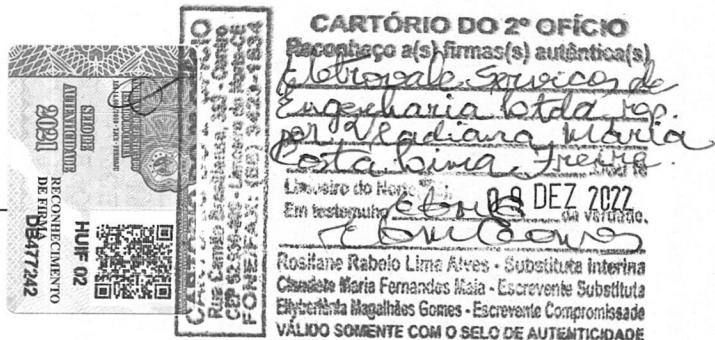 CARTÓRIO DO 2º OFÍCIO
Reconheço a(s) firmas(s) autêntica(s)
Eletrovale Serviços de
Engenharia Ltda rep.
por Veadiana Maria
Costa Lima Freire.
Limoeiro do Norte
09 DEZ 2022
Em testemunho da verdade.
Rosilane Rabelo Lima Alves - Substituta Interina
Claudete Maria Fernandes Maia - Escrevente Substituta
Magalhães Gomes - Escrevente Compromissade
VÁLIDO SOMENTE COM O SELO DE AUTENTICIDADE
2º OFÍCIO
Centro
Limoeiro do Norte-CE
FONE/FAX: (88) 3423-1834
SELO DE
AUTENTICIDADE
2021
RECONHECIMENTO
DE FIRMA
DB477242
HUIF 02